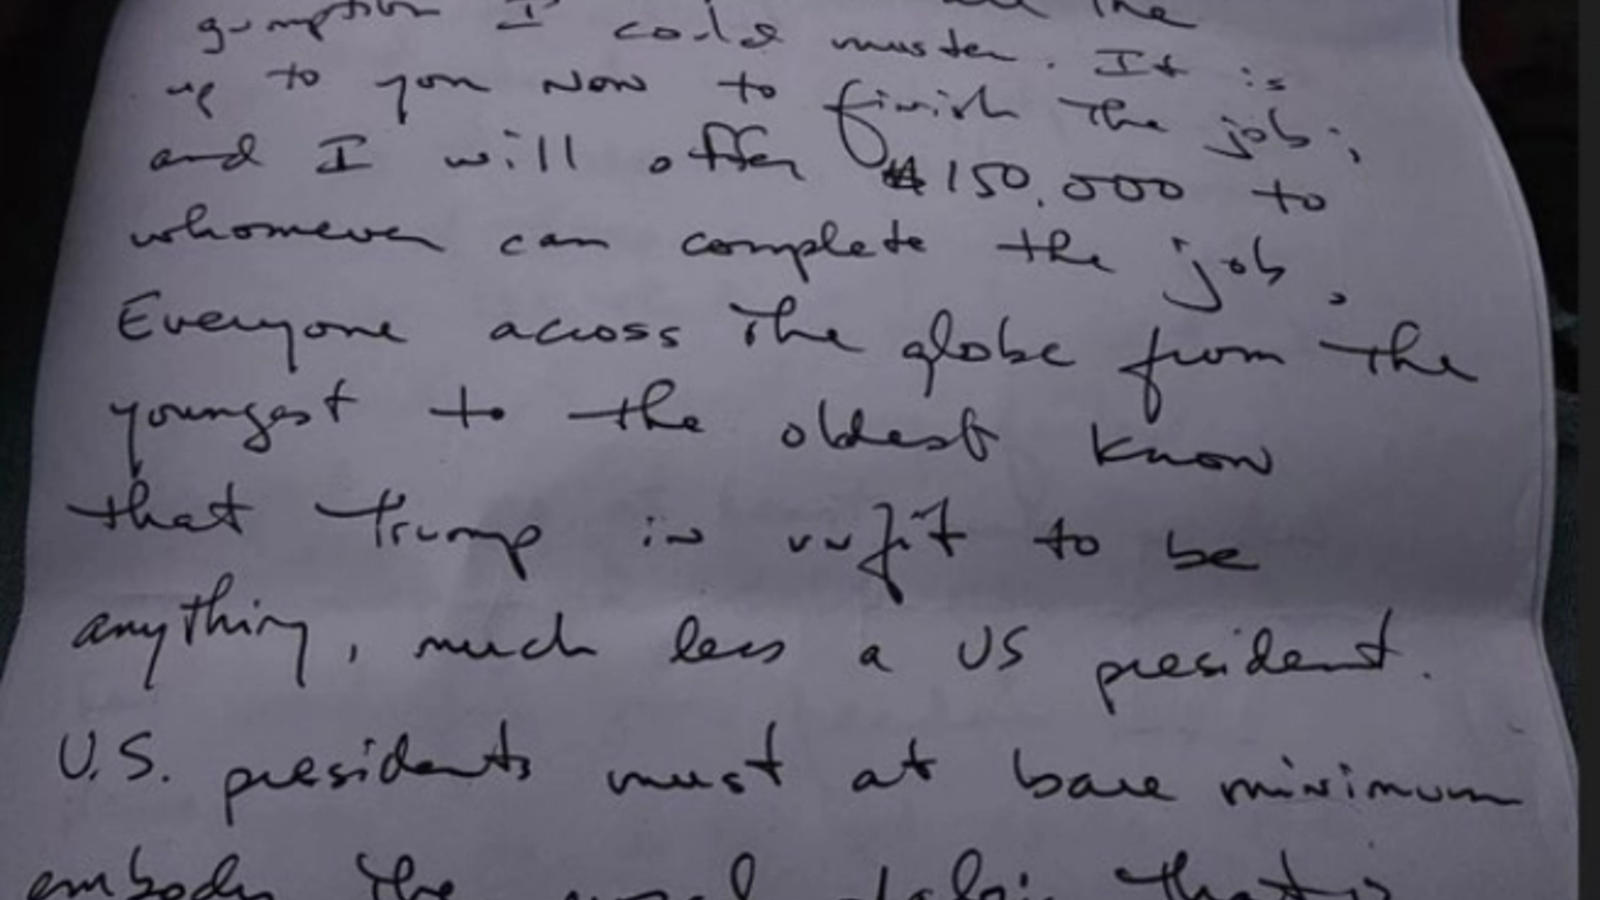 gumption I could muster. It is
up to you now to finish the job;
and I will offer $150,000 to
whomever can complete the job.
Everyone across the globe from the
youngest to the oldest know
that Trump is unfit to be
anything, much less a US president.
U.S. presidents must at bare minimum
embody the moral fabric that is